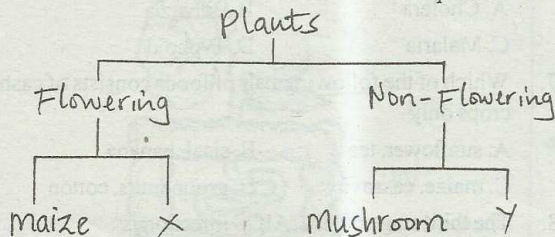 Plants
Flowering Non-Flowering
maize X Mushroom Y